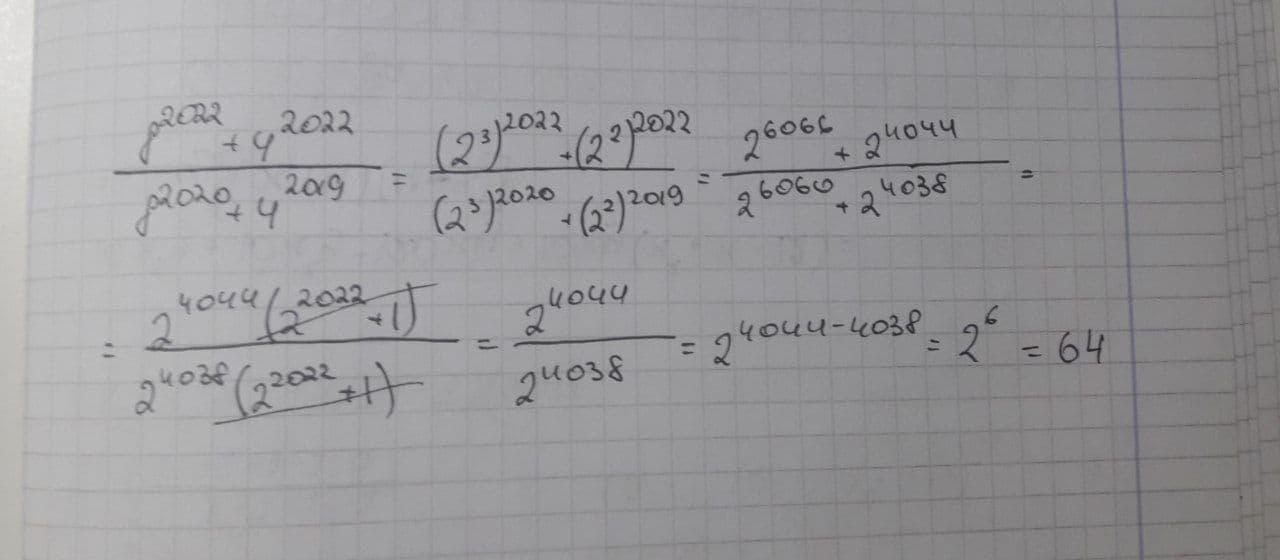 (8^2022 + 4^2022)/(8^2020 + 4^2019) = ((2^3)^2022 + (2^2)^2022)/((2^3)^2020 + (2^2)^2019) = (2^6066 + 2^4044)/(2^6060 + 2^4038) =
= 2^4044(2^2022 + 1)/2^4038(2^2022 + 1) = 2^4044/2^4038 = 2^4044-4038 = 2^6 = 64